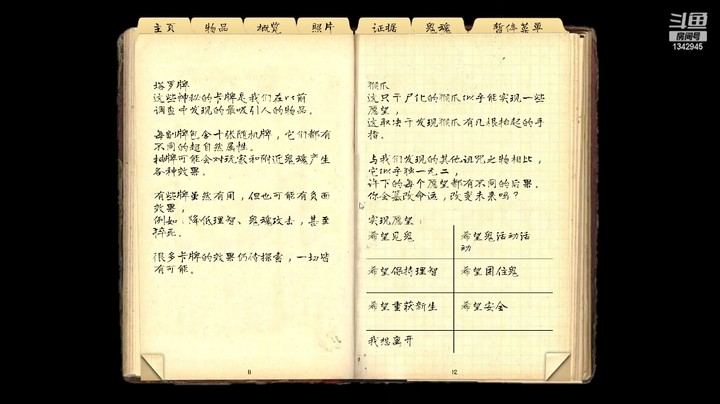 斗鱼
房间号
1342945
主页 物品 概览 照片 证据 鬼魂 暂停菜单
塔罗牌
这些神秘的卡牌是我们在以前
调查中发现的最吸引人的物品。
每副牌包含十张随机牌，它们都有
不同的超自然属性。
抽牌可能会对玩家和附近鬼魂产生
各种效果。
有些牌虽然有用，但也可能有负面
效果，
例如：降低理智、鬼魂攻击，甚至
猝死。
很多卡牌的效果仍待探索，一切皆
有可能。
11
猴爪
这只干尸化的猴爪似乎能实现一些
愿望，
这取决于发现猴爪有几根抬起的手
指。
与我们发现的其他诅咒之物相比，
它似乎独一无二，
许下的每个愿望都有不同的后果。
你会篡改命运，改变未来吗？
实现愿望：
希望见鬼 希望鬼活动活
动
希望保持理智 希望困住鬼
希望重获新生 希望安全
我想离开
12